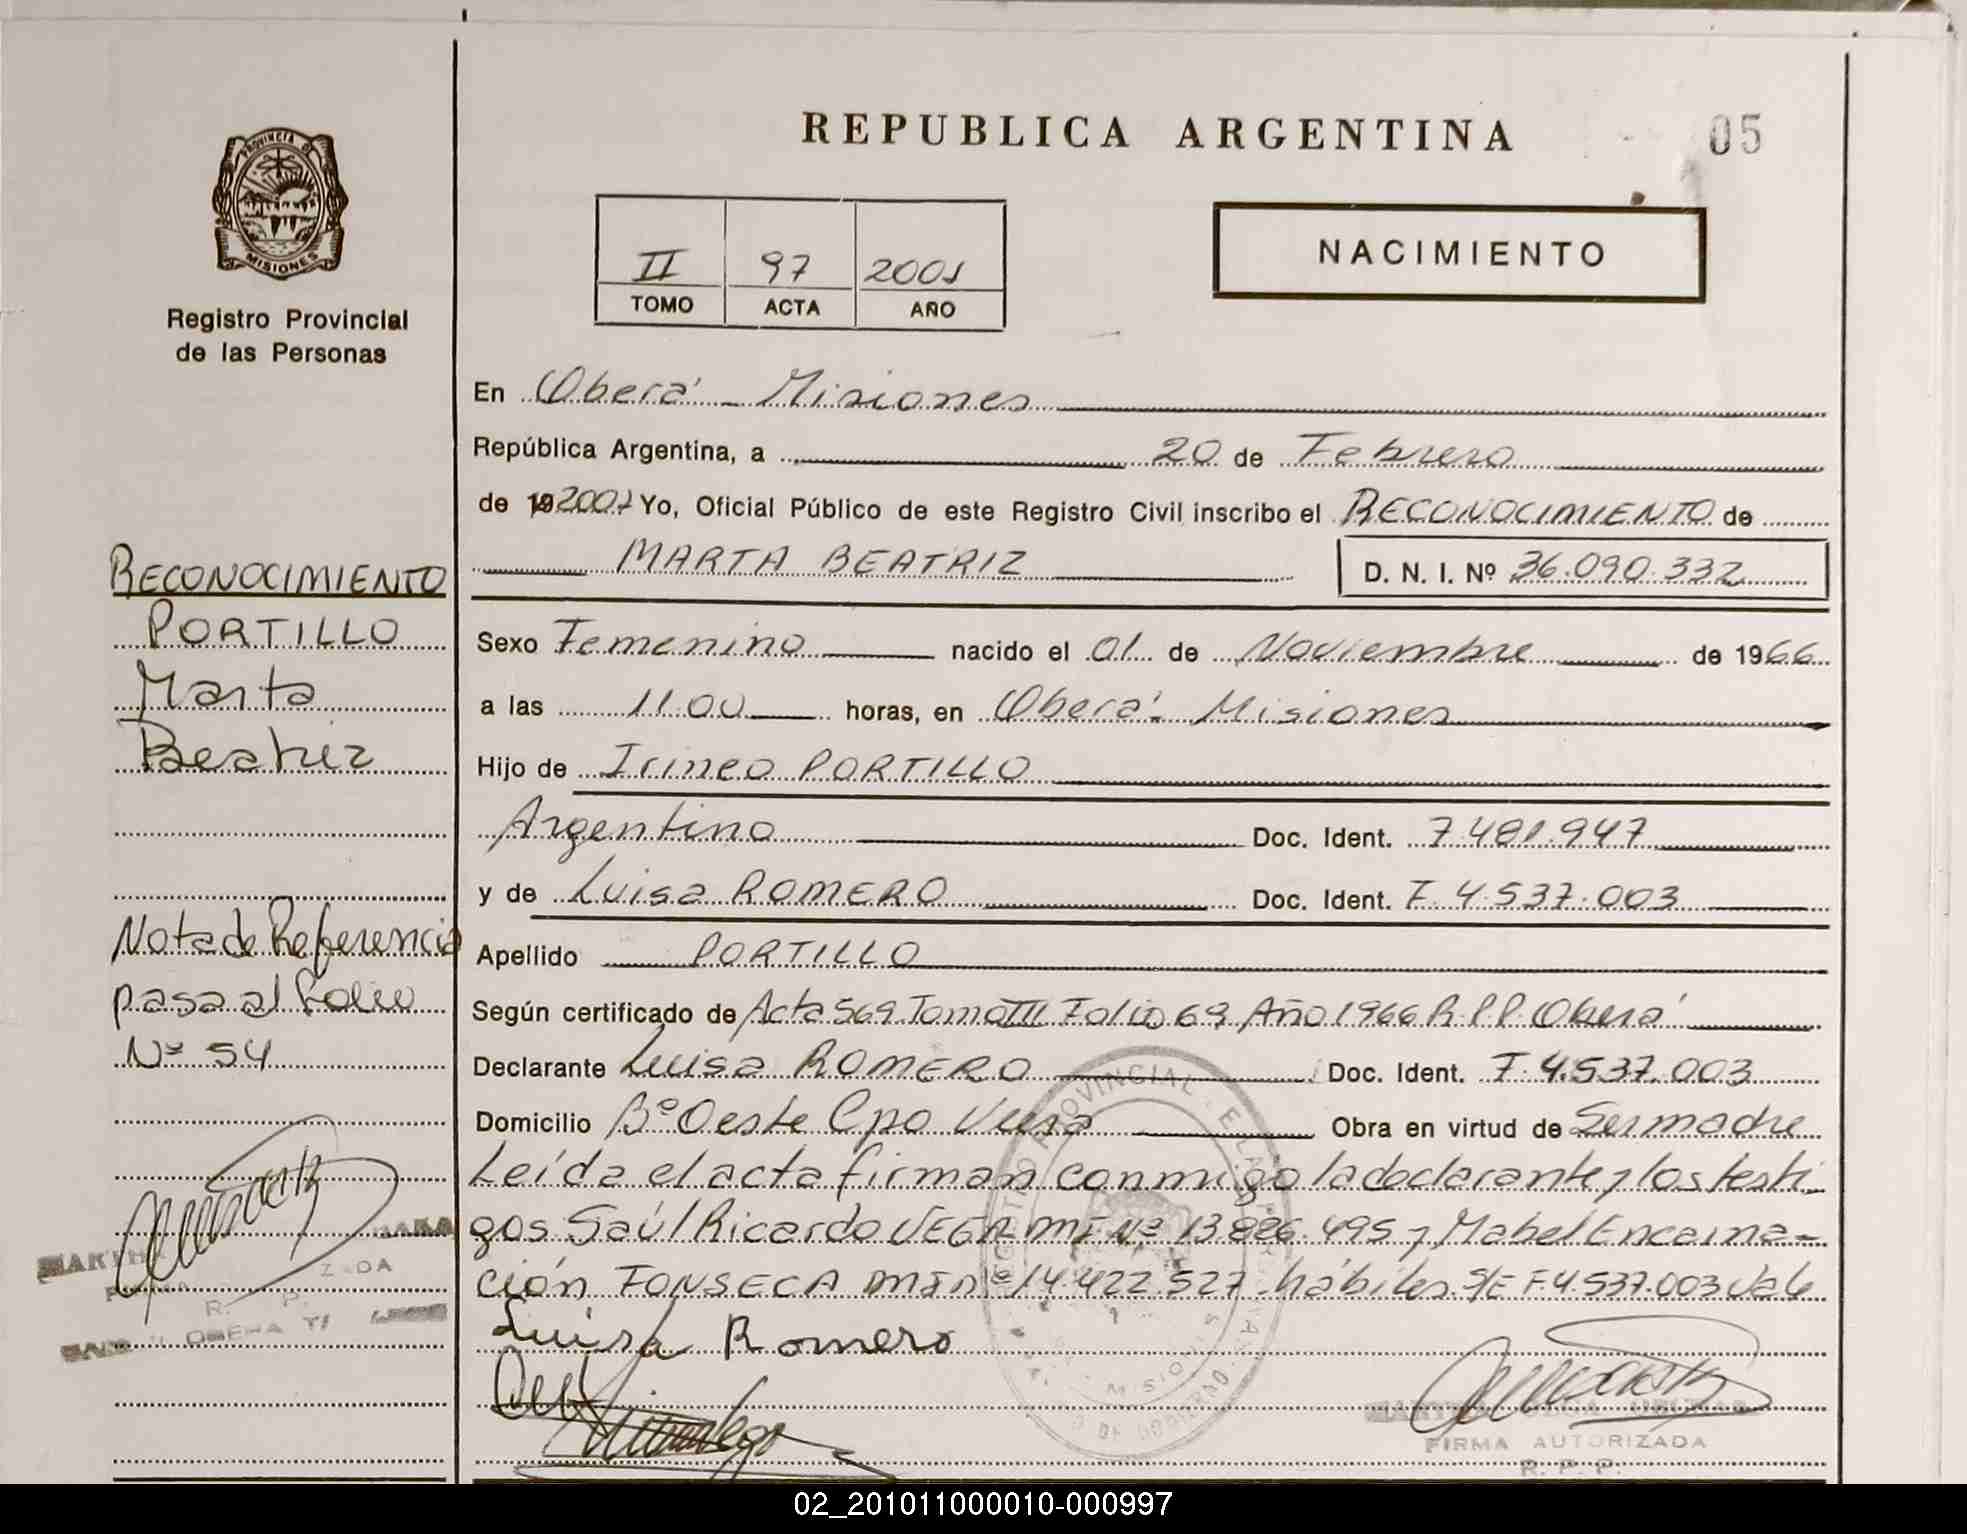 REPUBLICA ARGENTINA
05
PROVINCIA DE
MISIONES
Registro Provincial
de las Personas
II 97 2001
TOMO ACTA AÑO
NACIMIENTO
En Oberá - Misiones
República Argentina, a 20 de Febrero
de 19 2001 Yo, Oficial Público de este Registro Civil inscribo el RECONOCIMIENTO de
MARTA BEATRIZ D. N. I. Nº 36.090.332
Sexo Femenino nacido el 01 de Noviembre de 1966
a las 11.00 horas, en Oberá - Misiones
Hijo de Irineo PORTILLO
Argentino Doc. Ident. 7.481.947
y de Luisa ROMERO Doc. Ident. F. 4.537.003
Apellido PORTILLO
Según certificado de Acta 569 Tomo III Folio 69 Año 1966 R.P.P. Oberá
Declarante Luisa ROMERO Doc. Ident. F. 4.537.003
Domicilio Bº Oeste Cpo Viera Obra en virtud de Ser madre
Leída el acta firman conmigo la declarante y los testi-
gos Saúl Ricardo VEGA MI Nº 13.886.495 y Mabel Encarna-
ción FONSECA MI nº 14.422.527 hábiles S/E F.4.537.003 Vale
Luisa Romero
FIRMA AUTORIZADA
R. P. P.
RECONOCIMIENTO
PORTILLO
Marta
Beatriz
Nota de Referencia
pasa al folio
Nº 54
02_201011000010-000997